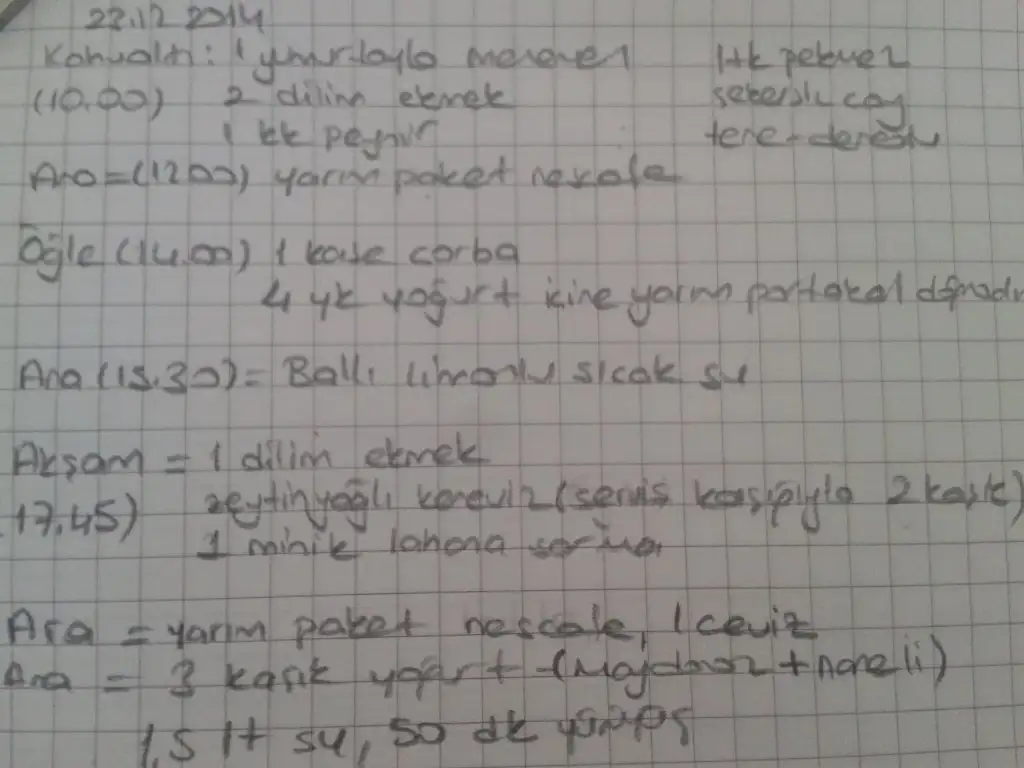 22.12.2014
Kahvaltı: 1 yumurtayla menemen 1 tk pekmez
(10.00) 2 dilim ekmek şekersiz çay
1 kk peynir tere-dereotu
Ara=(1200) yarım paket nescafe
Öğle (14.00) 1 kase çorba
4 yk yoğurt içine yarım portakal doğradım
Ara (15.30)= Ballı limonlu sıcak su
Akşam = 1 dilim ekmek
17.45) zeytinyağlı kereviz (servis kaşığıyla 2 kaşık)
1 minik lahana sarma
Ara = yarım paket nescafe, 1 ceviz
Ara = 3 kaşık yoğurt (maydanoz + naneli)
1,5 lt su, 50 dk yürüyüş